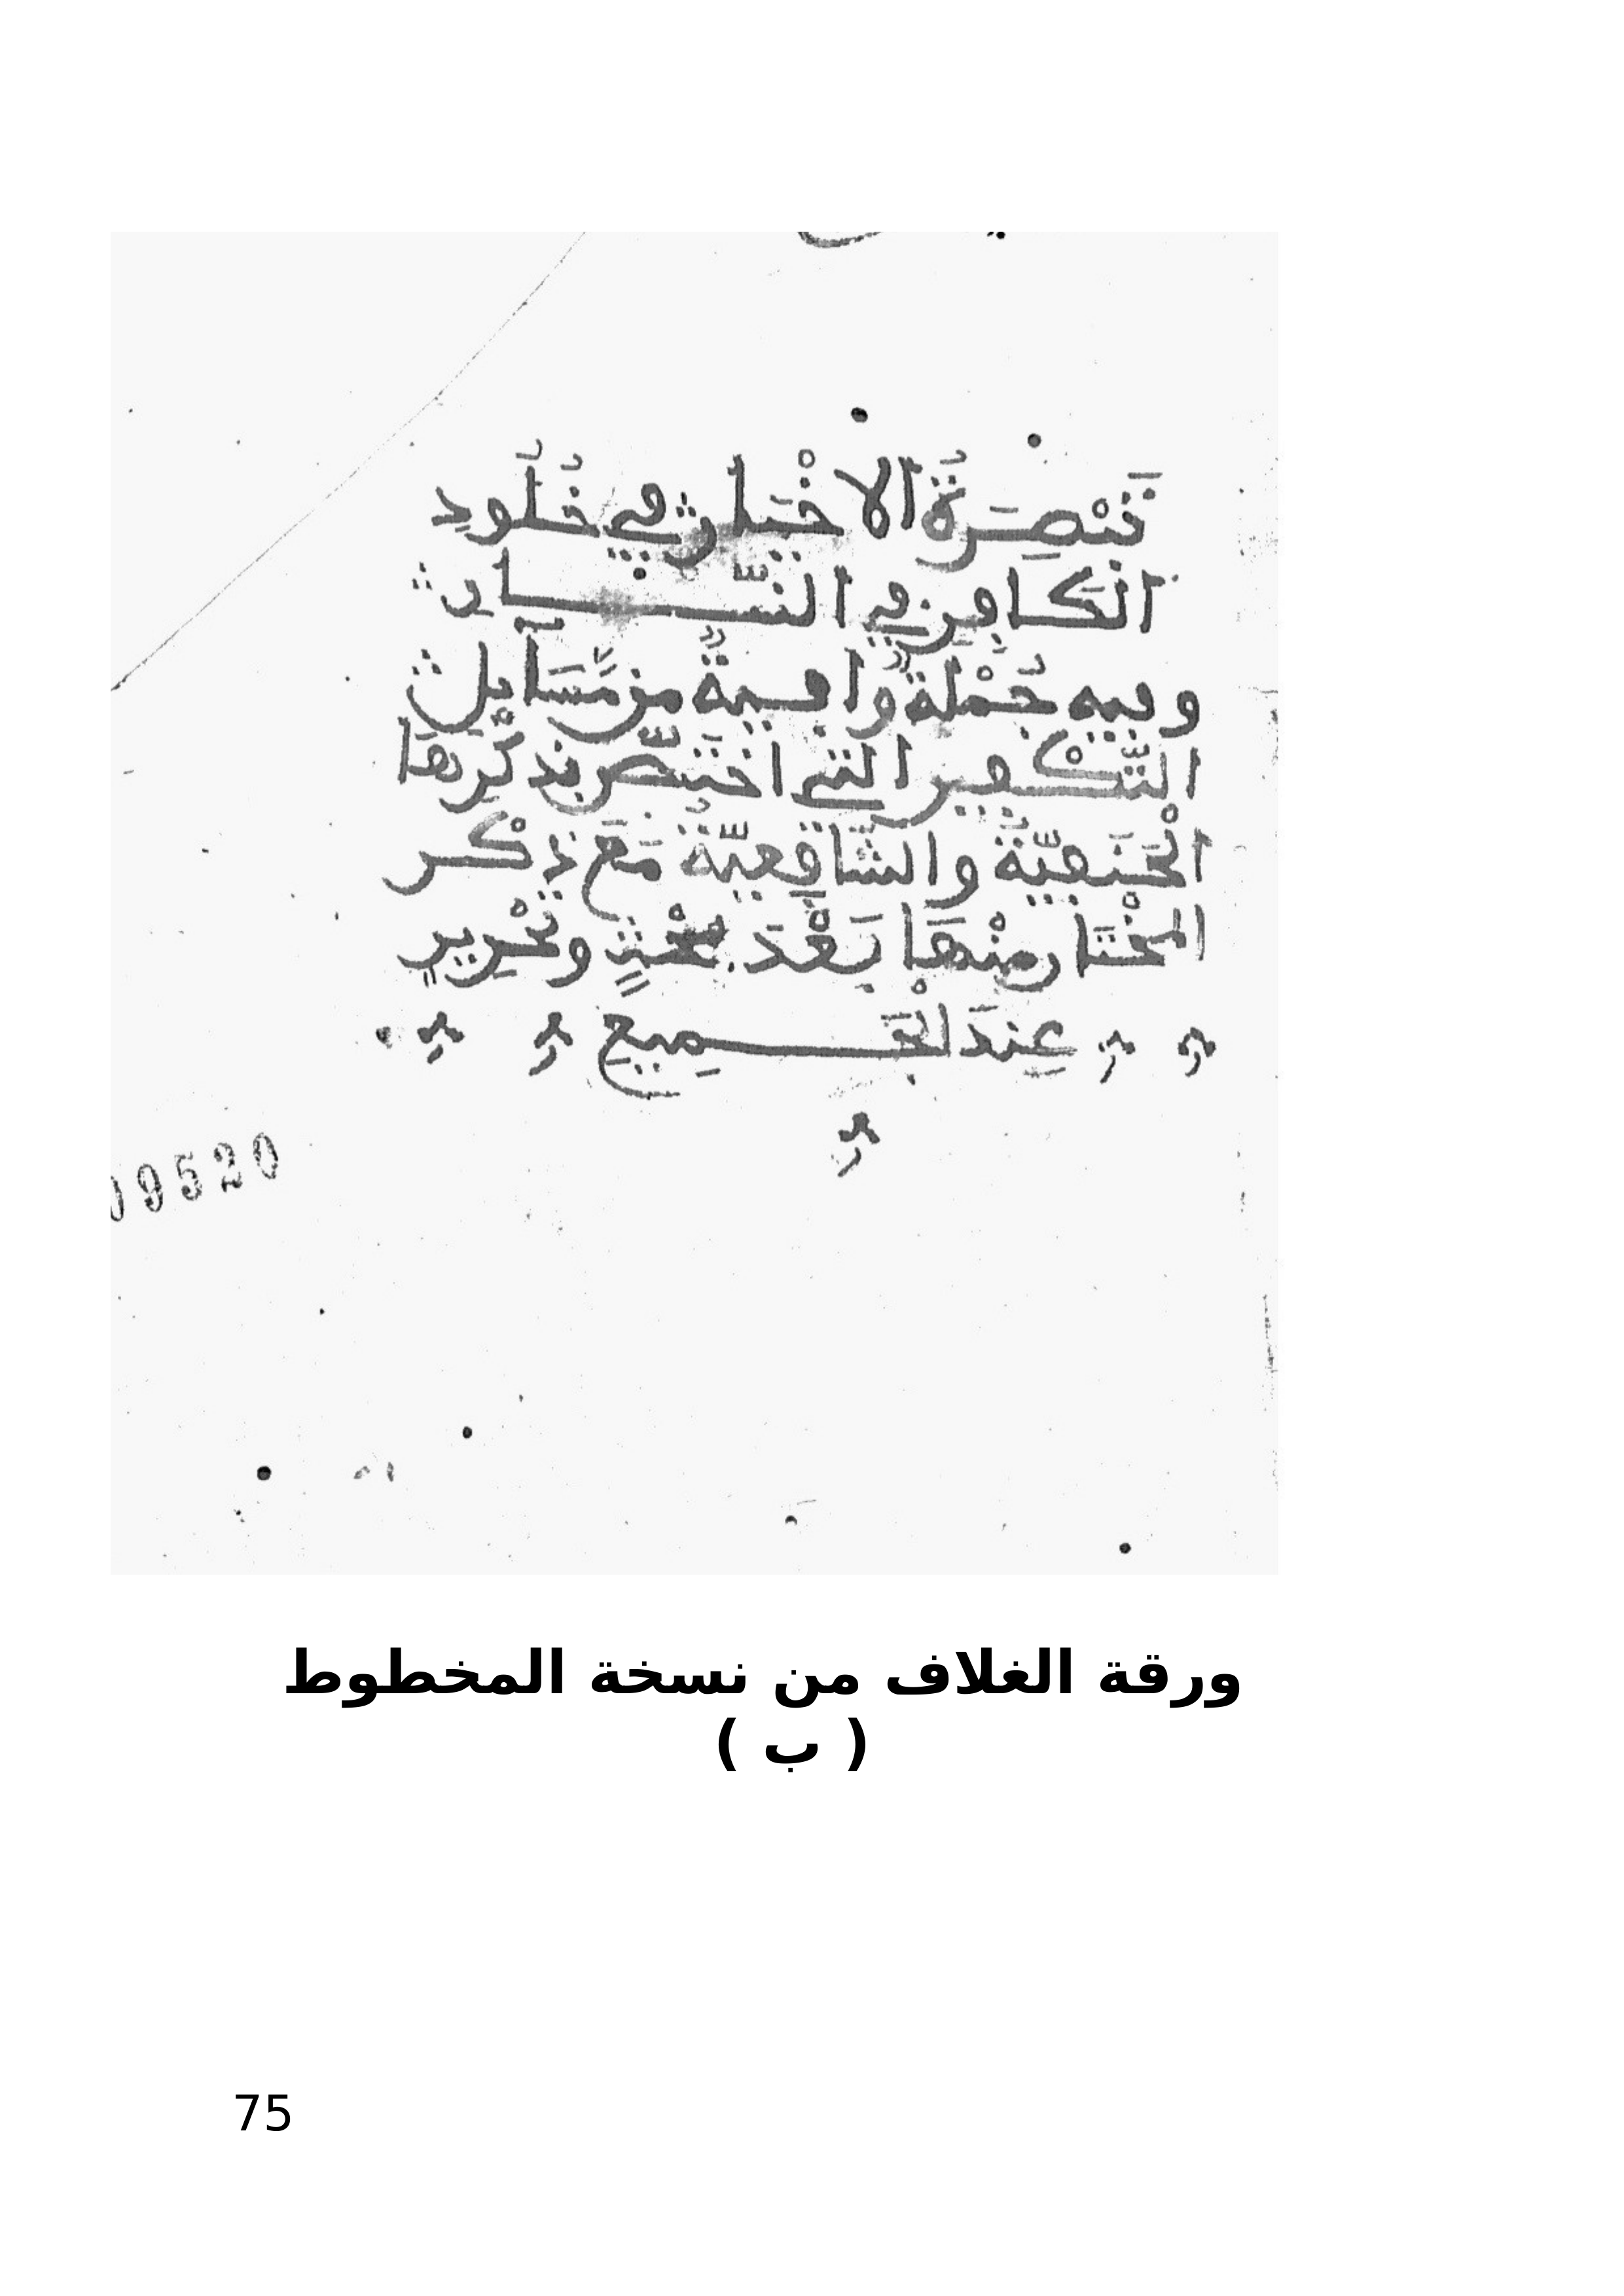 تَبْصِرَةُ الاخْيَار في خُلُودِ
الكافِر في النَّار
وفيه جُمْلَةٌ وافيةٌ من مَّسَايل
التَّكْفير التي اختَصَّ بذكْرهَا
الْحَنَفِيَّةُ والشَّافِعيَّةُ مَعَ ذكْر
المخْتَار منْهَا بَعْدَ بَحْثٍ وتَحْرِيرٍ
عِندَ الْجَمِيع
09520
ورقة الغلاف من نسخة المخطوط
( ب )
75